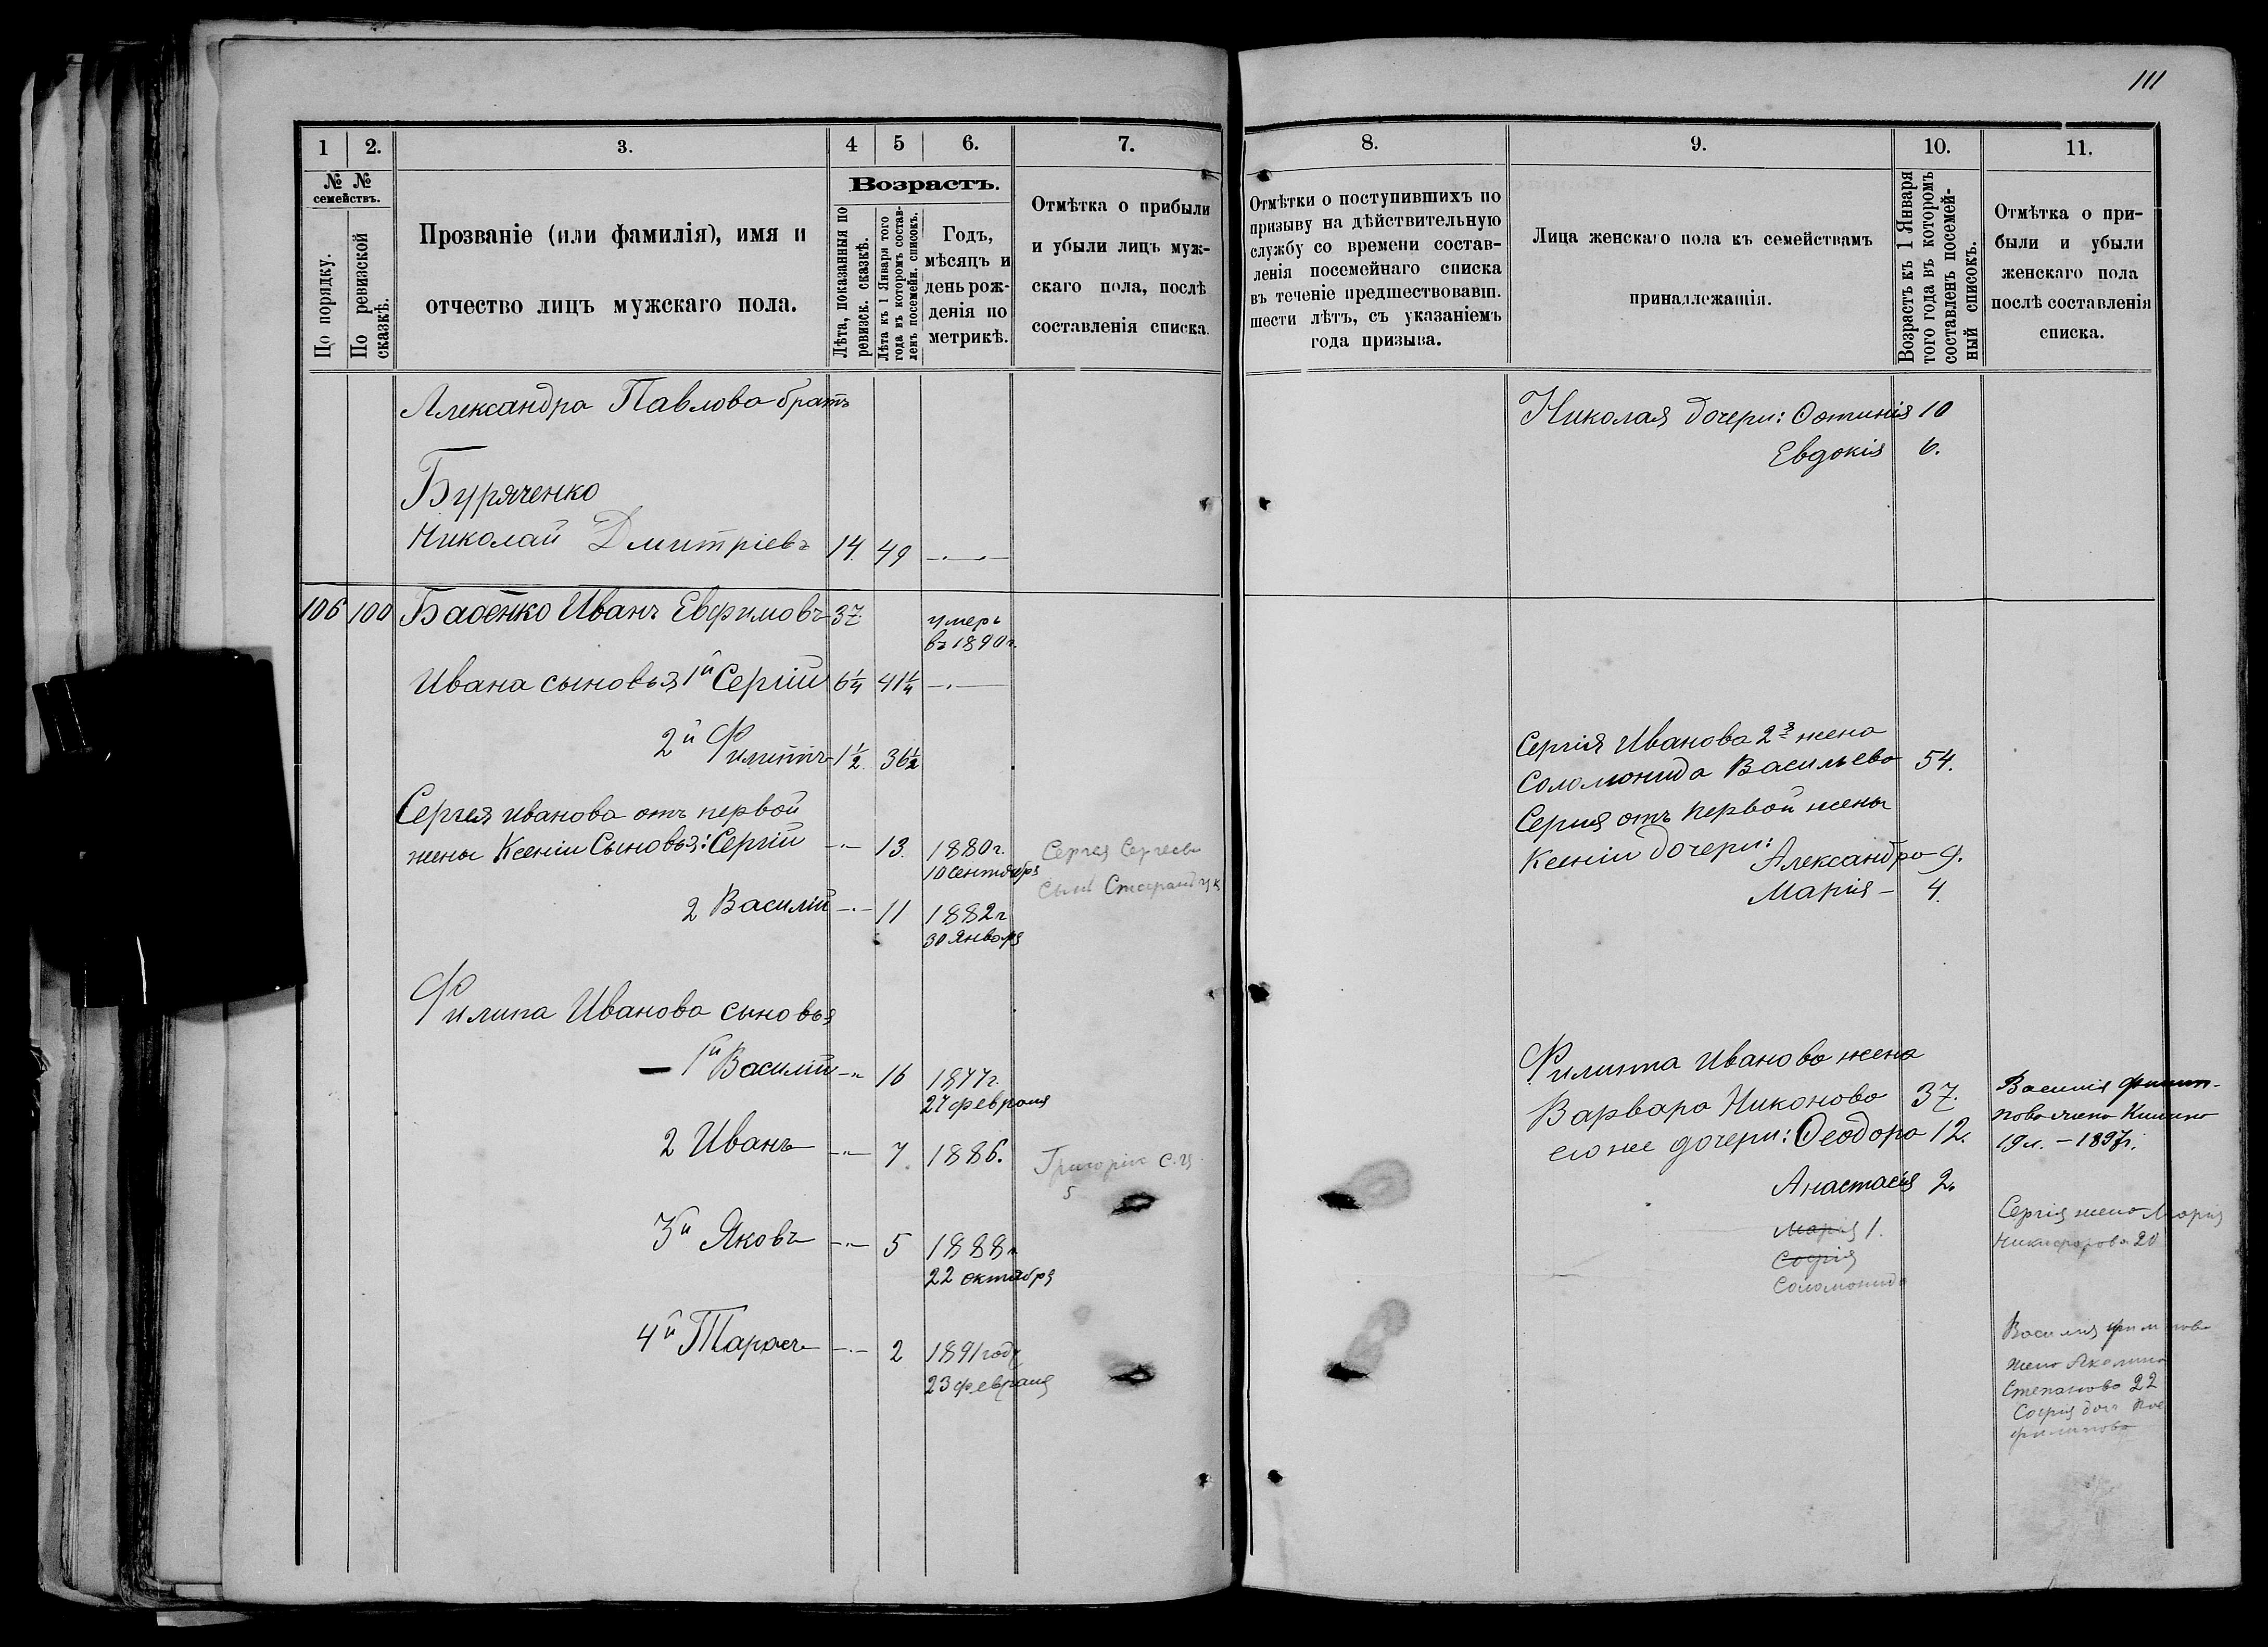 111
1 2. 3. 4 5 6. 7.
№ № семействъ.
По порядку.
По ревизской сказкѣ.
Прозваніе (или фамилія), имя и
отчество лицъ мужскаго пола.
Возрастъ.
Лѣта, показанныя по
ревизск. сказкѣ.
Лѣта къ 1 Января того
года въ которомъ состав-
ленъ посемейн. списокъ.
Годъ,
мѣсяцъ и
день рож-
денія по
метрикѣ.
Отмѣтка о прибыли
и убыли лицъ муж-
скаго пола, послѣ
составленія списка.
Александра Павлова братъ
Буряченко
Николай Дмитріевъ 14. 49
106 100 Бабенко Иванъ Евфимовъ 37.
умеръ
въ 1890 г.
Ивана сыновья 1й Сергій 6¼ 41¼
2й Филиппъ 1½ 36½
Сергея Иванова отъ первой
жены Ксеніи Сыновья: Сергій 13. 1880 г.
10 Сентября
Сергея Сергеева
сынъ
2 Василій 11 1882 г
30 Января
Филипа Иванова сыновья
1й Василій 16 1877 г.
27 февраля
2 Иванъ 7. 1886.
3й Яковъ 5 1888 г
22 октября
4й Тарасъ 2 1891 году
23 февраля
8. 9. 10. 11.
Отмѣтки о поступившихъ по
призыву на дѣйствительную
службу со времени состав-
ленія посемейнаго списка
въ теченіе предшествовавш.
шести лѣтъ, съ указаніемъ
года призыва.
Лица женскаго пола къ семействамъ
принадлежащія.
Возрастъ къ 1 Января
того года въ которомъ
составленъ посемей-
ный списокъ.
Отмѣтка о при-
были и убыли
женскаго пола
послѣ составленія
списка.
Николая дочери: 10
Евдокія 6.
Сергія Иванова 2я жена
Соломонида Васильева 54.
Сергія отъ первой жены
Ксеніи дочери:
Александра 9.
Марія - 4.
Филиппа Иванова жена
Варвара Никонова 37.
его же дочери: Ѳеодора 12.
Анастасія 2.
Марія 1.
Софія
Соломонида
Василія Филип-
пова жена
19 л. - 1897 г.
Сергія жена Марія
Никифорова 20
Василія Филипова
жена Акилина
Степанова 22
Софія доч
филипова